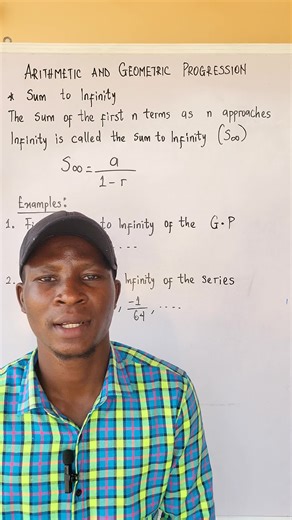 ARITHMETIC AND GEOMETRIC PROGRESSION
* Sum to Infinity
The sum of the first n terms as n approaches
Infinity is called the sum to Infinity (S∞)
S∞ = a / 1 - r
Examples:
1. to Infinity of the G.P
....
2. Infinity of the series
, -1/64, ....